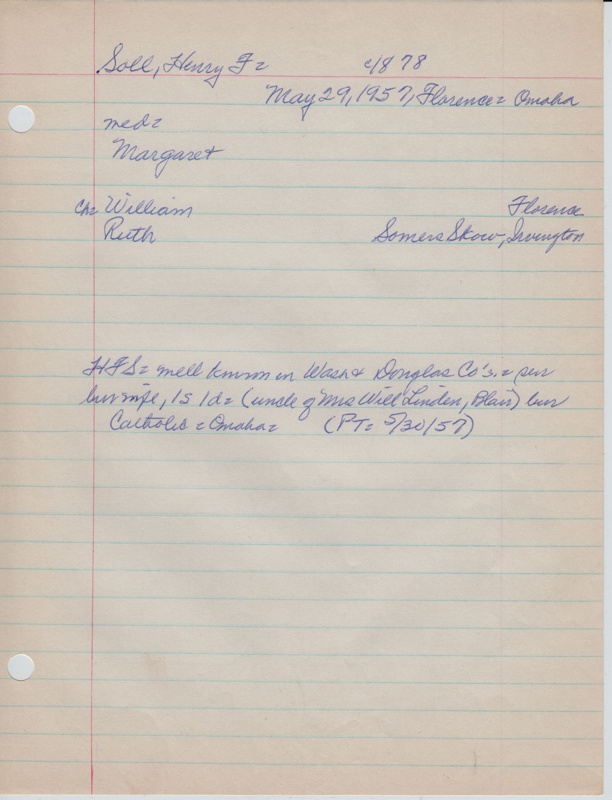 Soll, Henry F= c/878
May 29, 1957, Florence = Omaha
med=
Margaret
Ch= William Florence
Ruth Somers Skow, Irvington
HFS= well known in Wash & Douglas Co's. = sur
by wife, 1s 1d= (uncle of Mrs Will Linden, Blair) bur
Catholic = Omaha= (PT= 5/30/57)